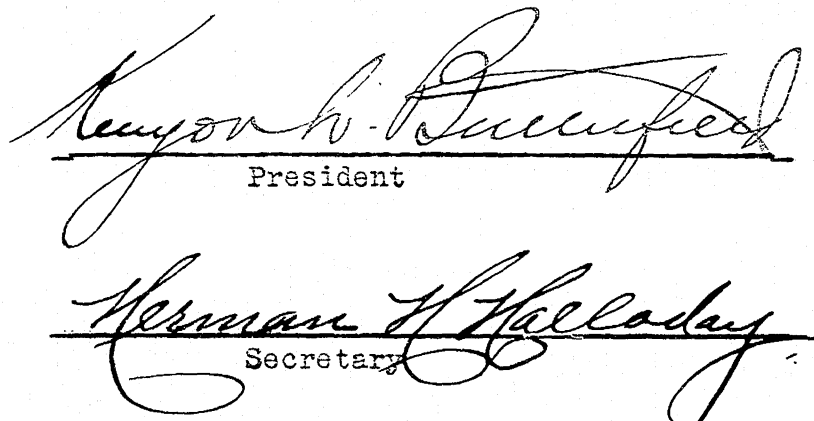 Kenyon L. Butterfield
President
Herman H Halladay
Secretary